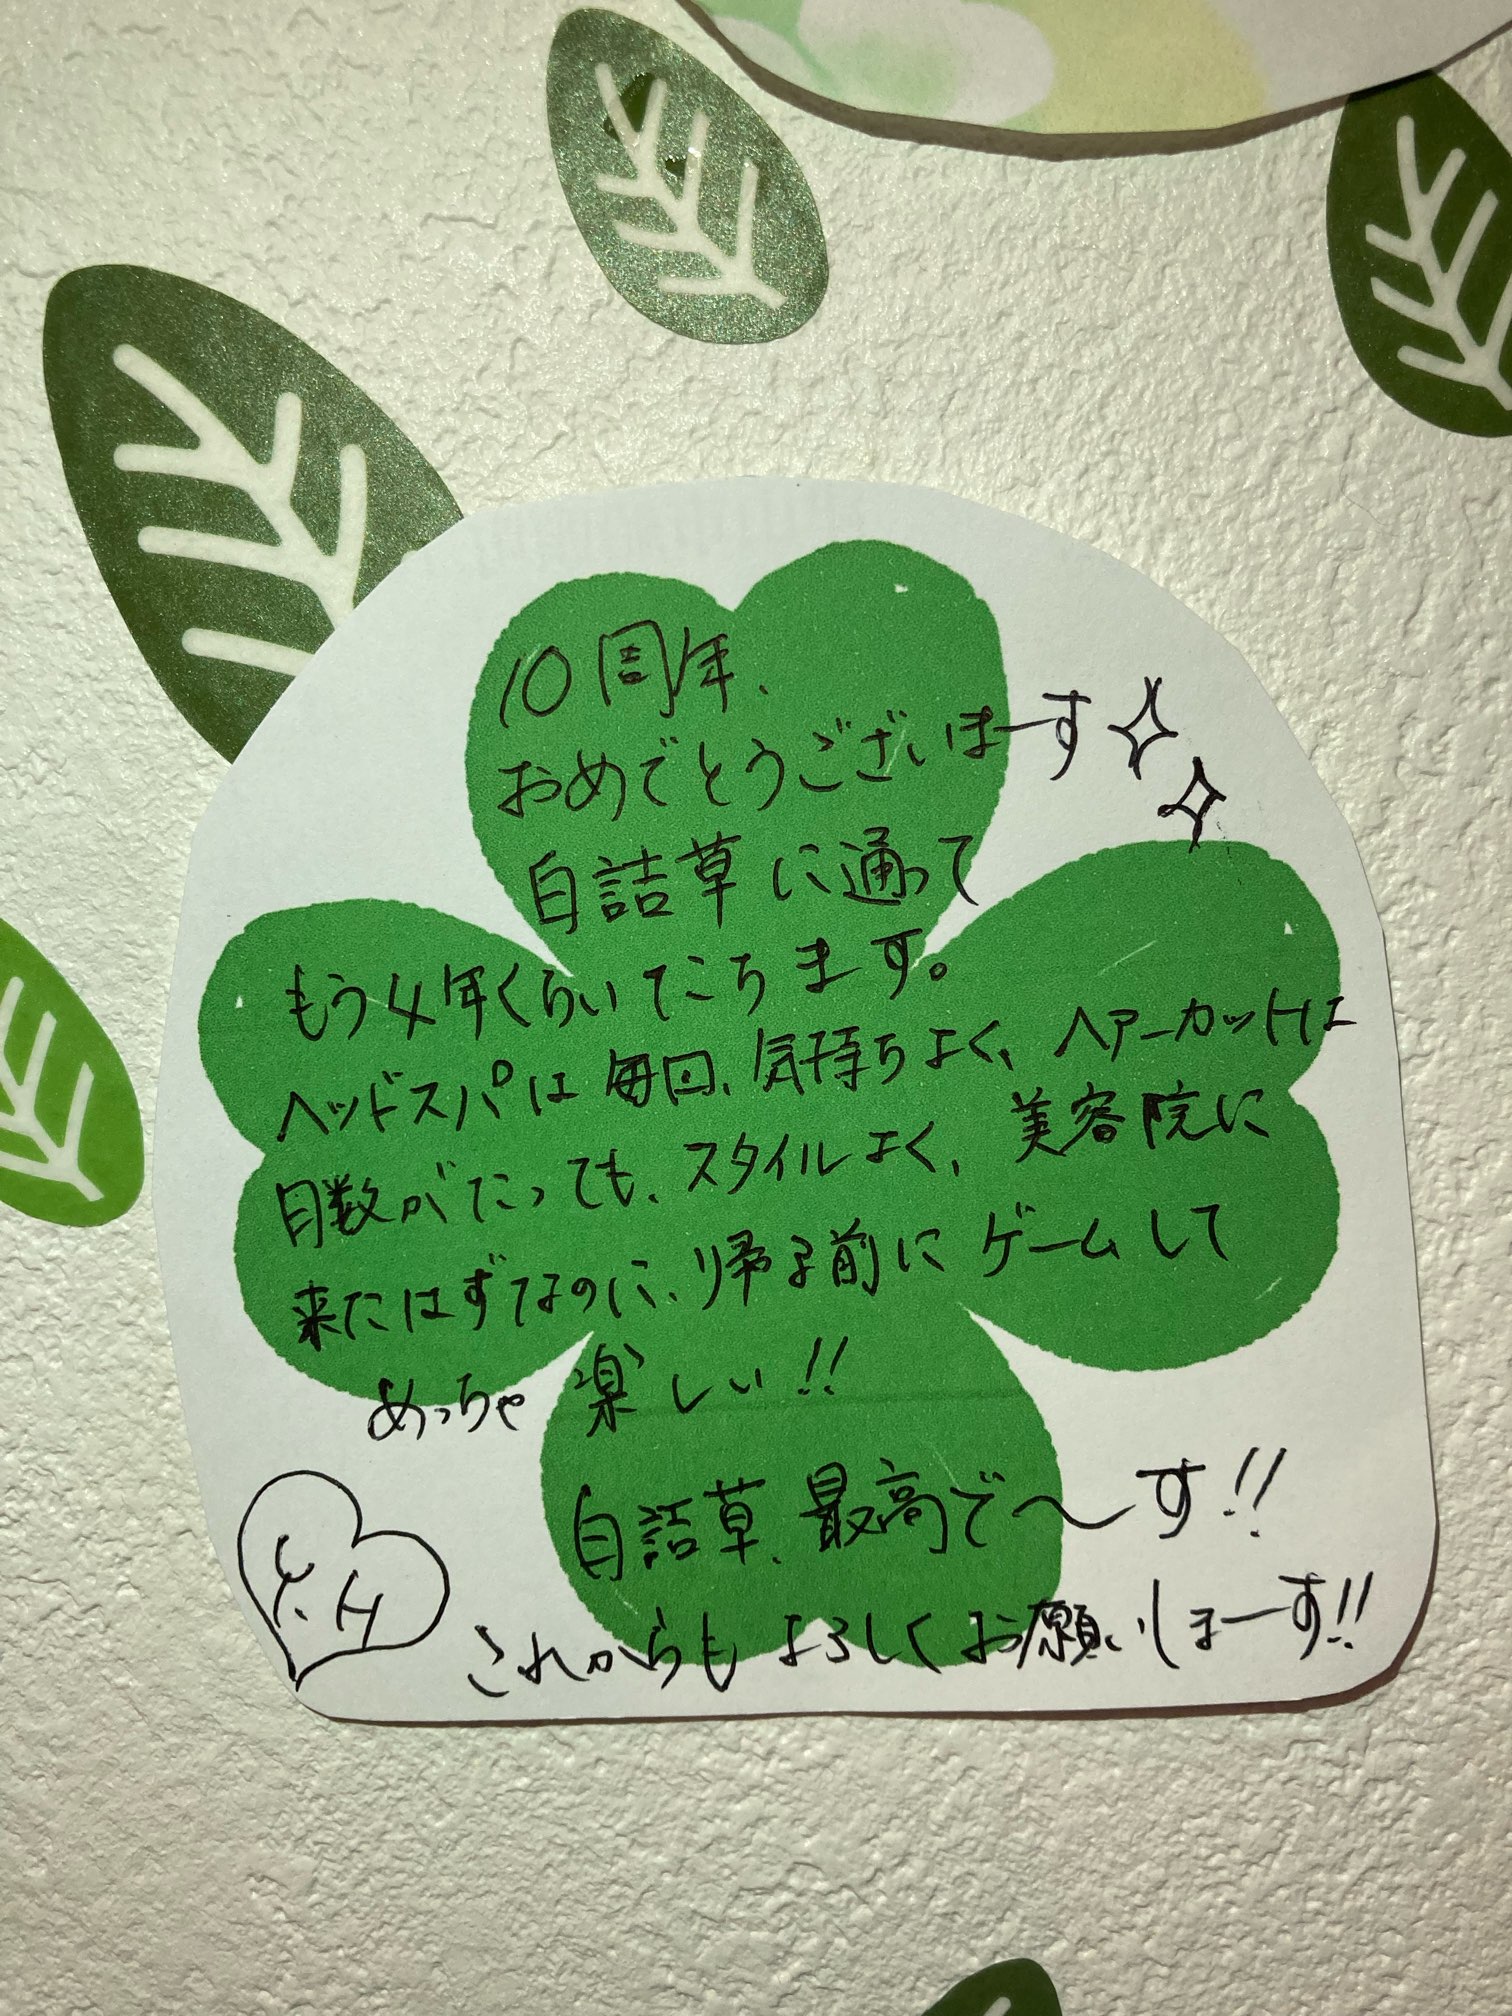 10周年、
おめでとうございまーす
白詰草に通って
もう4年くらいたちます。
ヘッドスパは毎回、気持ちよく、ヘアーカットは
日数がたっても、スタイルよく、美容院に
来たはずなのに、帰る前にゲームして
めっちゃ楽しい!!
白詰草、最高で〜す!!
Y.H
これからもよろしくお願いしまーす!!